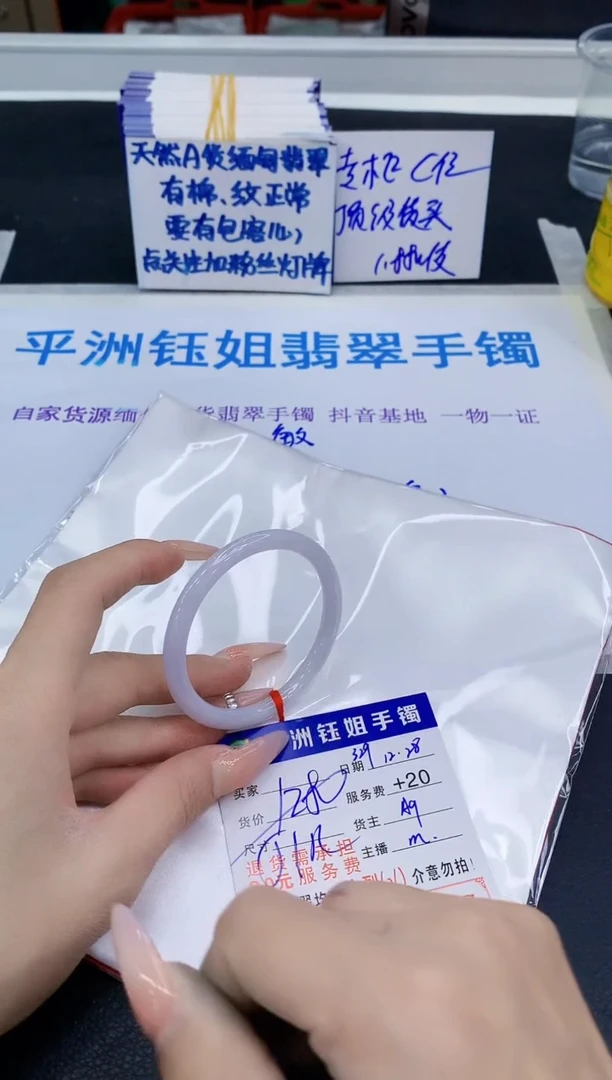 天然A货缅甸翡翠
有棉、纹正常
要有包磨儿)
点关注加粉丝灯牌
专柜C位
顶级货头
平洲钰姐翡翠手镯
自家货源缅 货翡翠手镯 抖音基地 一物一证
敏
洲钰姐手镯
日期 329 12.28
买家
服务费 +20
货价
货主
尺寸
主播 m.
退货需承担
元服务费
介意勿拍!